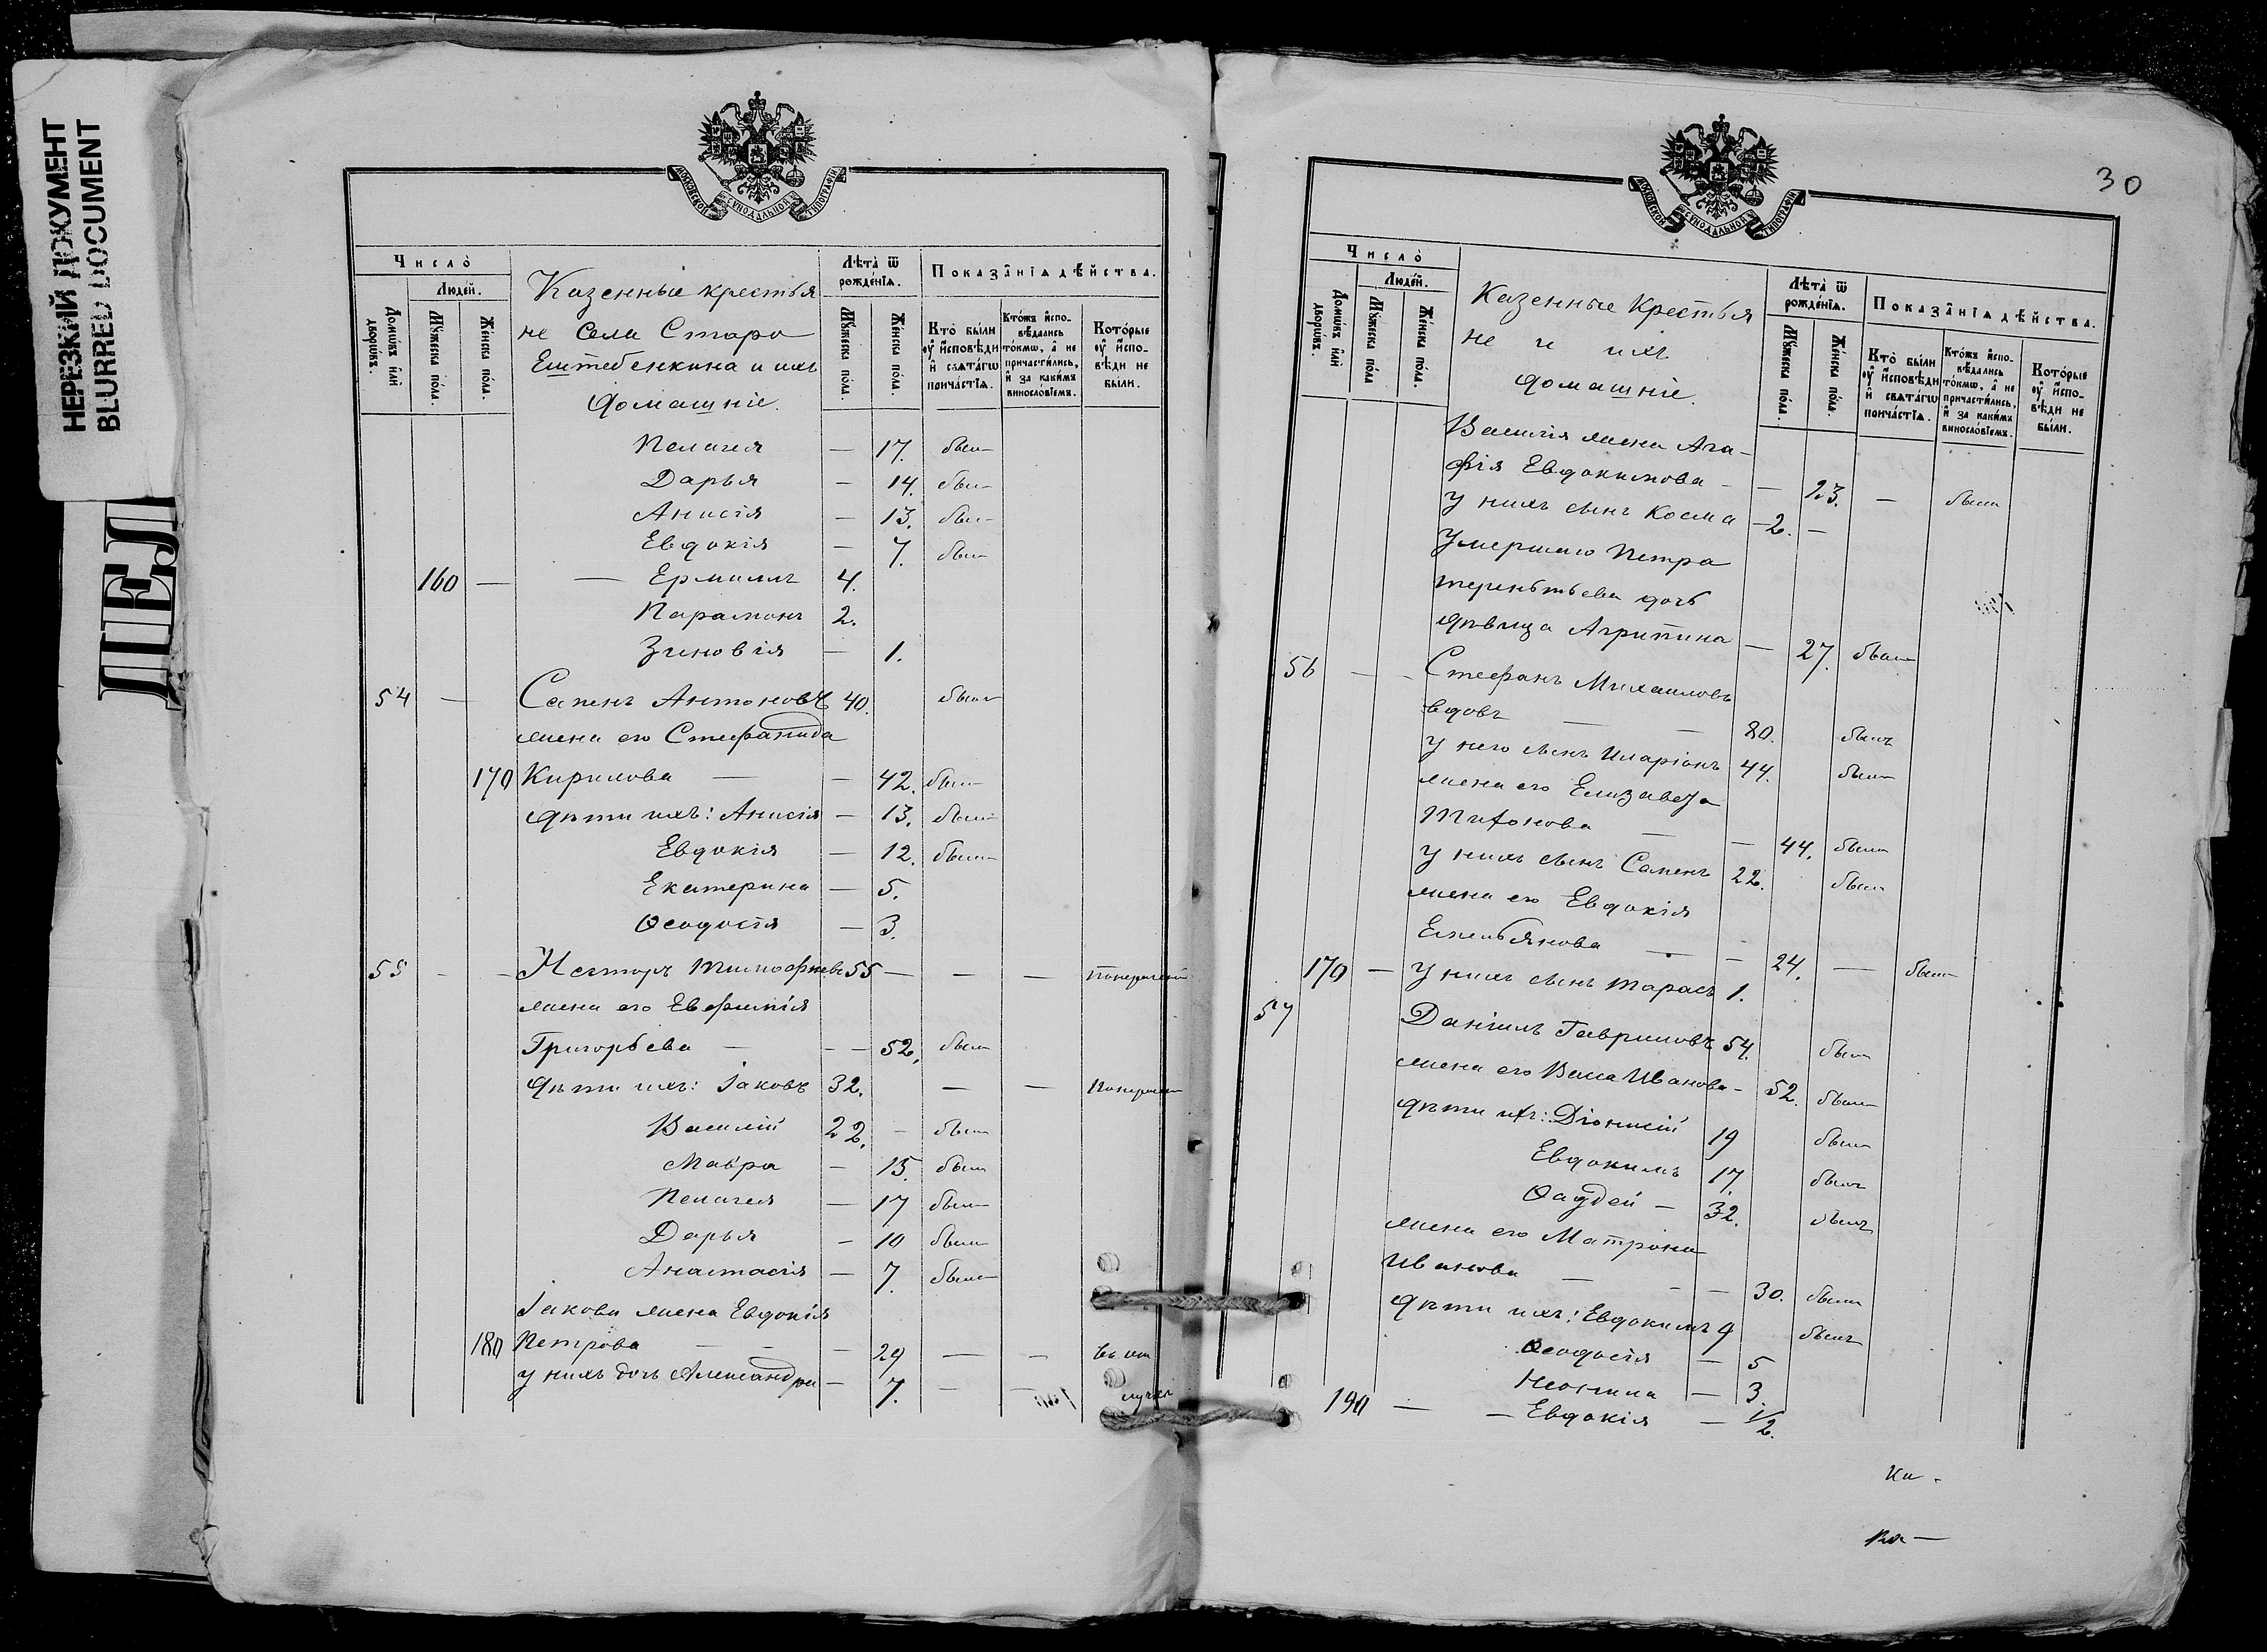 НЕРЕЗКИЙ ДОКУМЕНТ
BLURRED DOCUMENT
МОСКОВСКОЙ СУНОДАЛЬНОЙ ТИПОГРАФІИ
Число̀
Людей.
Домѡвъ или дворѡвъ.
Мꙋжеска пола.
Женска пола.
Казенные крестья
не Села Старо
Ештебенкина и ихъ
домашніе.
Лѣта ѿ рожденїѧ.
Мꙋжеска пола.
Женска пола.
Показанїѧ дѣйства.
Кто были оу исповѣди и свѧтагѡ причастїѧ.
Ктожъ исповѣдались токмѡ, а не причастились, и за какимъ винословїемъ.
Которые оу исповѣди не были.
Пелагея — 17. был
Дарья — 14. был
Анисія — 13. был
Евдокія — 7. был
160 — — Ермилъ 4.
Парамонъ 2.
Зиновія — 1.
54 — Сапенъ Антоновъ 40. былъ
жена его Стефанида
170 Кирилова — — 42. был
дѣти ихъ: Анисія — 13. был
Евдокія — 12. был
Екатерина — 5.
Ѳеодосія — 3.
55 — — Несторъ Тимофеевъ 55 — — —
жена его Евфимія
Григорьева — — — 52. был
дѣти ихъ: Іаковъ 32. — —
Василій 22. — был
Мавра — 15. был
Пелагея — 17 был
Дарья — 10 был
Анастасія — 7. был
Іакова жена Евдокія
180 Петрова — — — 29 — — въ от
у нихъ дочь Александра — 7. — — лучкѣ
30
МОСКОВСКОЙ СУНОДАЛЬНОЙ ТИПОГРАФІИ
Число̀
Людей.
Домѡвъ или дворѡвъ.
Мꙋжеска пола
Женска пола.
Казенные Крестья
не и ихъ
домашніе.
Лѣта ѿ рожденїѧ.
Мꙋжеска пола.
Женска пола.
Показанїѧ дѣйства.
Кто были оу исповѣди и свѧтагѡ причастїѧ.
Ктожъ исповѣдались токмѡ, а не причастились, и за какимъ винословїемъ.
Которые оу исповѣди не были.
Василія жена Ага-
фія Евдокимова — — 23. — была
у нихъ сынъ Косма — 2. —
Умершаго Петра
терентьева дочь
дѣвица Агрипина — 27. была
56 — — Стефанъ Михаиловъ
вдовъ — — 80. былъ
у него сынъ Иларіонъ 44. был
жена его Елизавета
Тихонова — — 44. был
у нихъ сынъ Сапенъ 22. был
жена его Евдокія
Емельянова — — 24. — был
170 — у нихъ сынъ Тарасъ 1.
57 Даніилъ Гавриловъ 54. был
жена его Васа Иванова — 52. был
дѣти их: Діонисій 19 был
Евдокимъ 17. былъ
Ѳаддей — 32. былъ
жена его Матрона
Иванова — — — 30. был
дѣти ихъ: Евдокимъ 9 былъ
Ѳеодосія — 5
Неонила — 3.
190 — — Евдокія — 1/2.